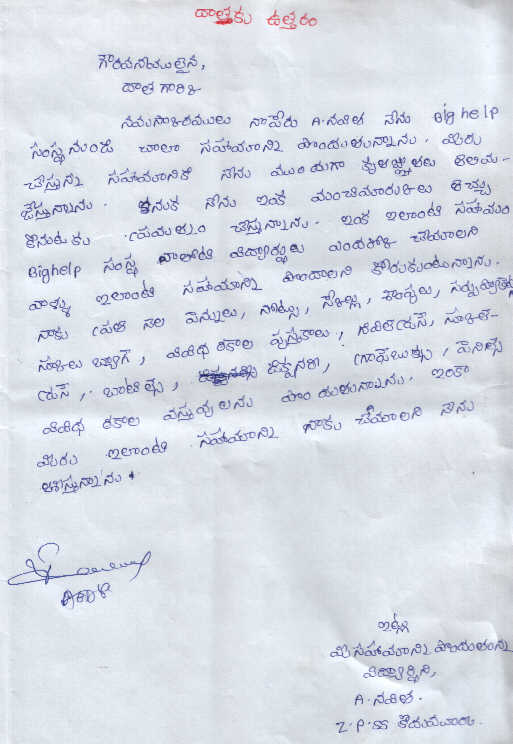 దాతకు ఉత్తరం
గౌరవనీయులైన,
దాత గారికి
నమస్కారములు నాపేరు A.నవిత నేను Big help
సంస్థ నుండి చాలా సహాయాన్ని పొందుతున్నాను. మీరు
చేస్తున్న సహాయానికి నేను ముందుగా కృతజ్ఞతలు తెలియ-
జేస్తున్నాను. నేను ఇంకా మంచిమార్కులు తెచ్చు
కొనుటకు ప్రయత్నం చేస్తున్నాను. ఇంకా ఇలాంటి సహాయం
Bighelp సంస్థ వాళ్ళు విద్యార్థులు చేయాలని
వాళ్ళు ఇలాంటి సహాయాన్ని పొందాలని కోరుకుంటున్నాను.
నాకు ప్రతి నెల పెన్నులు, నోట్సు, పేజీలు, షాంపులు,
స్కూలు బ్యాగ్, వివిధ రకాల పుస్తకాలు, స్కూల్-
డ్రస్, బాటిల్స్, డిక్షనరీ, గ్రాఫ్ బుక్స్, పెన్సిల్స్
వివిధ రకాల వస్తువులను పొందుతున్నాను. ఇంకా
మీరు ఇలాంటి సహాయాన్ని నాకు చేయాలని నేను
ఆశిస్తున్నాను.
ఇట్లు
మీ సహాయాన్ని పొందుతున్న
విద్యార్థిని,
A.నవిత.
Z.P.SS